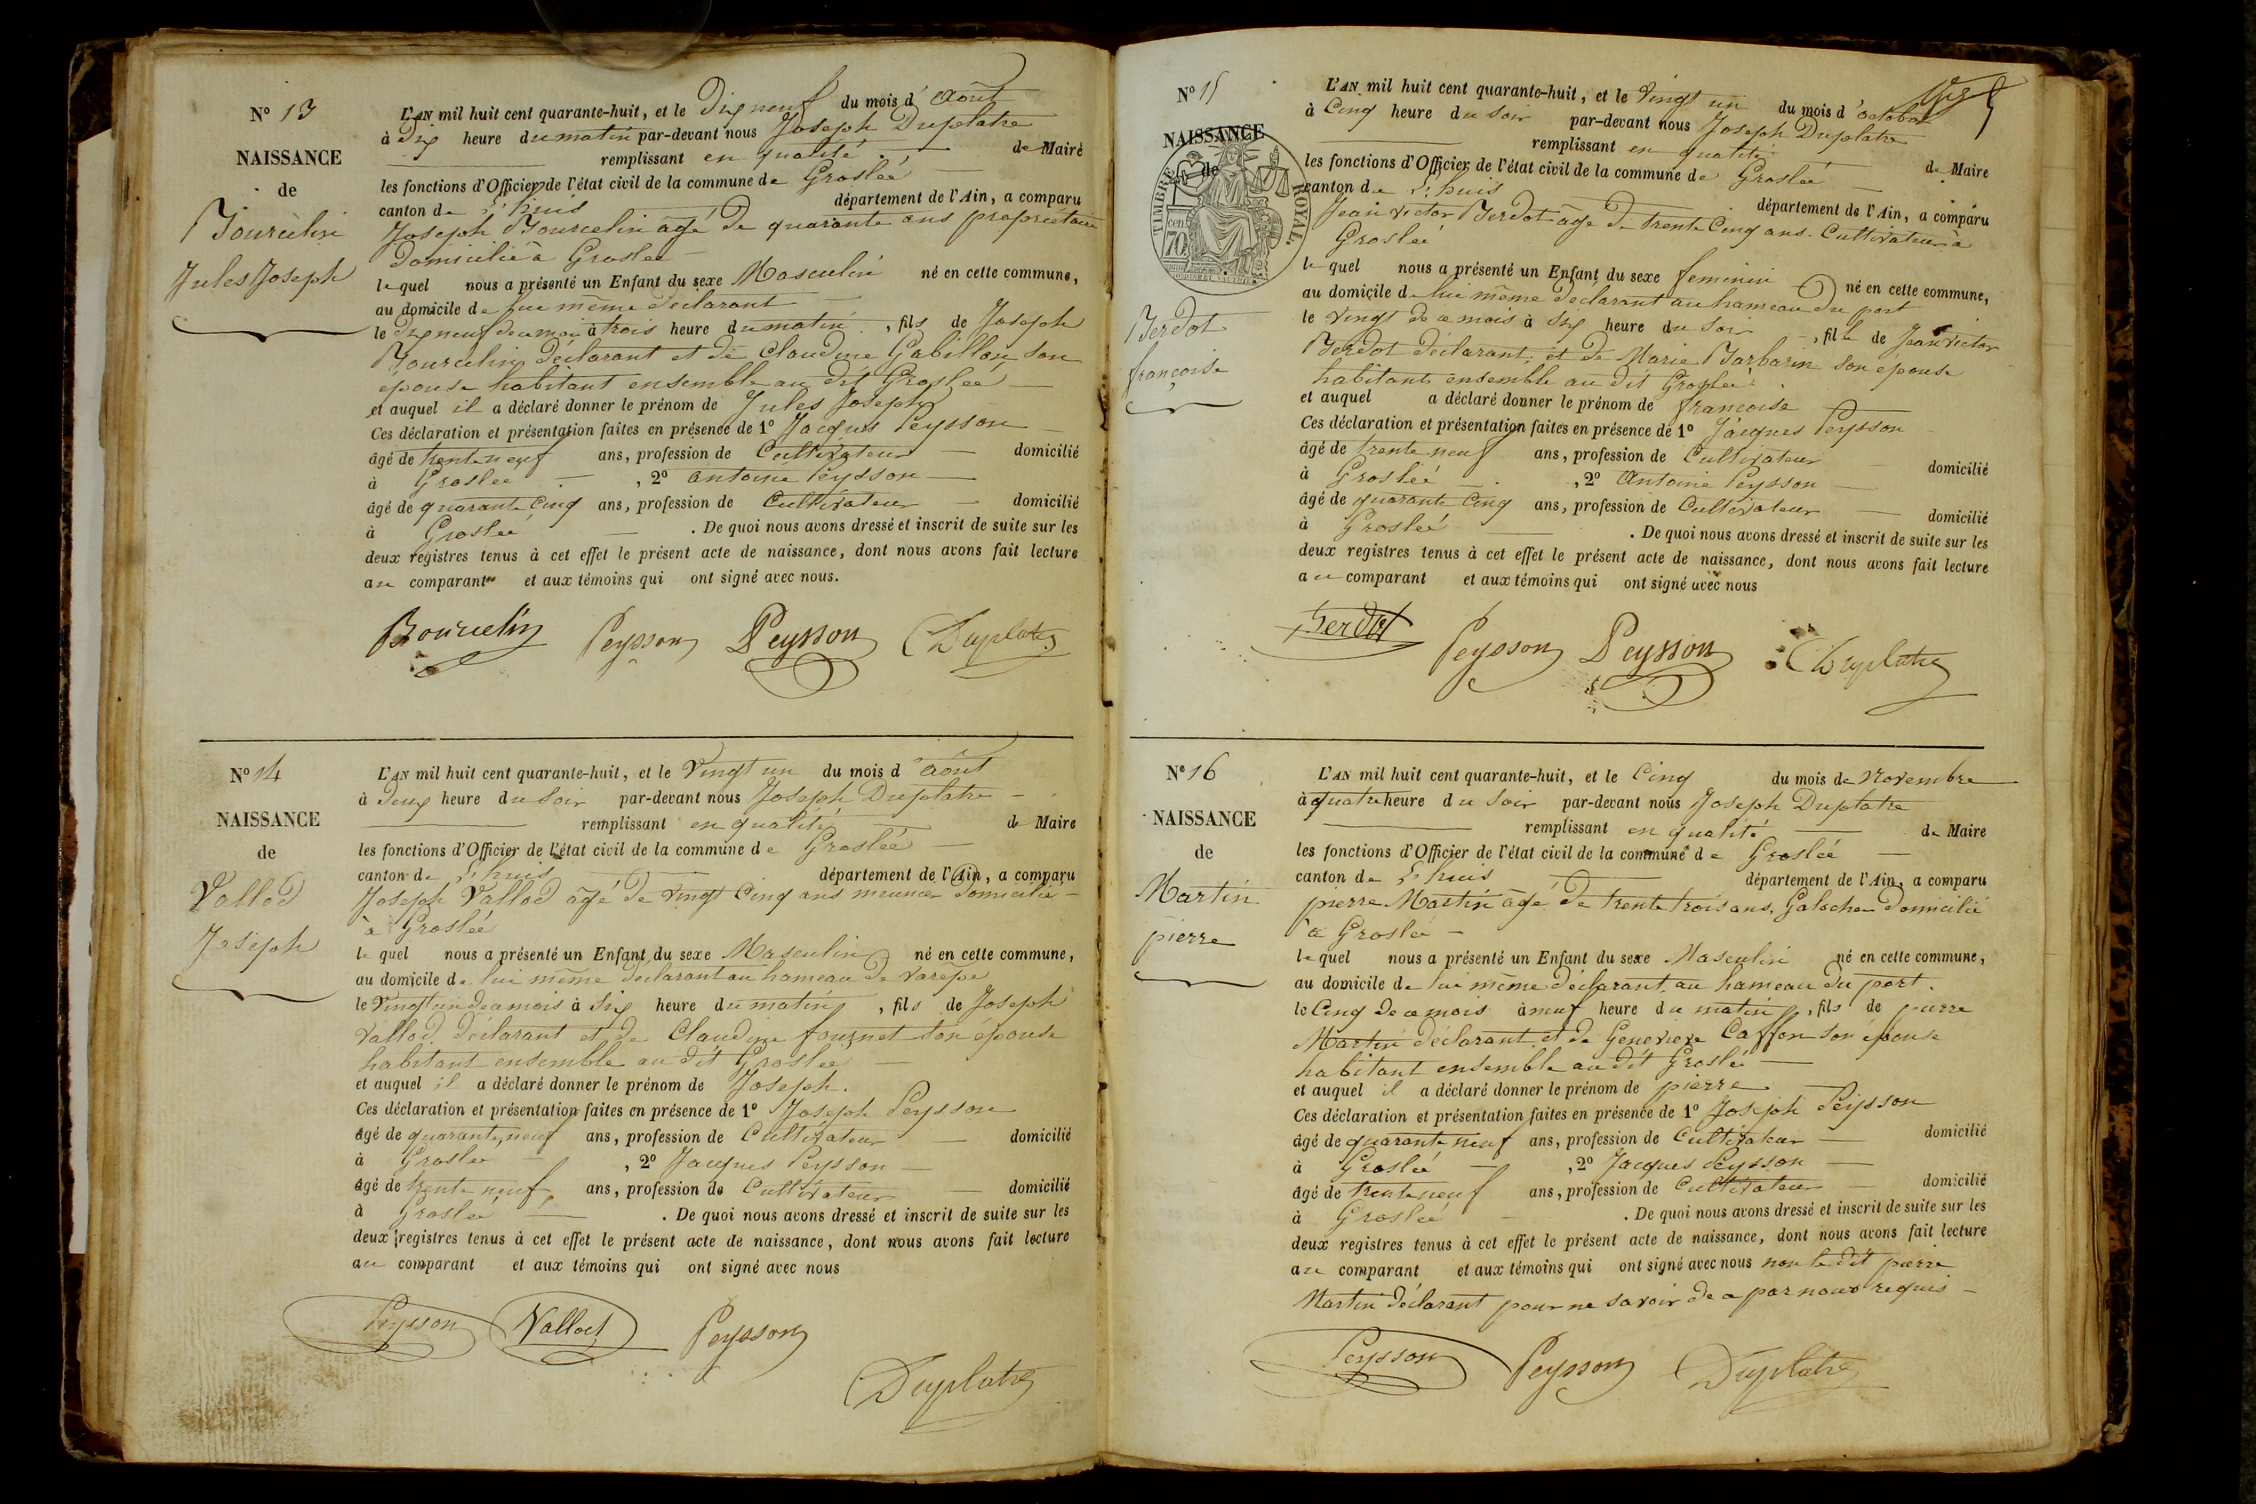 N° 13
NAISSANCE
de
Bourcelin
Jules Joseph
L'AN mil huit cent quarante-huit, et le Dix neuf du mois d'Août
à Dix heure du matin par-devant nous Joseph Duplatre
remplissant en qualité de Maire
les fonctions d'Officier de l'état civil de la commune de Groslée
canton de L'huis département de l'Ain, a comparu
Joseph Bourcelin âgé de quarante ans propriétaire
domicilié à Groslée
lequel nous a présenté un Enfant du sexe Masculin né en cette commune,
au domicile de lui même déclarant
le dix neuf de ce mois à trois heure du matin, fils de Joseph
Bourcelin déclarant et de Claudine Gabillon son
épouse habitant ensemble au dit Groslée
et auquel il a déclaré donner le prénom de Jules Joseph
Ces déclaration et présentation faites en présence de 1° Jacques Peysson
âgé de trente neuf ans, profession de Cultivateur domicilié
à Groslée, 2° antoine Peysson
âgé de quarante cinq ans, profession de Cultivateur domicilié
à Groslée. De quoi nous avons dressé et inscrit de suite sur les
deux registres tenus à cet effet le présent acte de naissance, dont nous avons fait lecture
au comparant et aux témoins qui ont signé avec nous.
Bourcelin Peysson Peysson Duplatre
N° 14
NAISSANCE
de
Vallod
Joseph
L'AN mil huit cent quarante-huit, et le Vingt un du mois d'Août
à Deux heure du Soir par-devant nous Joseph Duplatre
remplissant en qualité de Maire
les fonctions d'Officier de l'état civil de la commune de Groslée
canton de L'huis département de l'Ain, a comparu
Joseph Vallod âgé de vingt cinq ans meunier domicilié
à Groslée
lequel nous a présenté un Enfant du sexe Masculin né en cette commune,
au domicile de lui même déclarant au hameau de Varèpe
le Vingt un de ce mois à Six heure du matin, fils de Joseph
Vallod déclarant et de Claudine fournet son épouse
habitant ensemble au dit Groslée
et auquel il a déclaré donner le prénom de Joseph.
Ces déclaration et présentation faites en présence de 1° Joseph Peysson
âgé de quarante neuf ans, profession de Cultivateur domicilié
à Groslée, 2° Jacques Peysson
âgé de trente neuf ans, profession de Cultivateur domicilié
à Groslée. De quoi nous avons dressé et inscrit de suite sur les
deux registres tenus à cet effet le présent acte de naissance, dont nous avons fait lecture
au comparant et aux témoins qui ont signé avec nous
Peysson Vallod Peysson
Duplatre
N° 15
NAISSANCE
de
TIMBRE ROYAL.
70
Berdot
françoise
L'AN mil huit cent quarante-huit, et le Vingt un du mois d'octobre
à Cinq heure du Soir par-devant nous Joseph Duplatre
remplissant en qualité de Maire
les fonctions d'Officier de l'état civil de la commune de Groslée
canton de L'huis département de l'Ain, a comparu
Jean victor Berdot âgé de trente Cinq ans. Cultivateur à
Groslée
lequel nous a présenté un Enfant du sexe feminin né en cette commune,
au domicile de lui même déclarant au hameau du port
le Vingt de ce mois à Six heure du Soir, fille de Jean victor
Berdot déclarant, et de Marie Barbarin son épouse
habitant ensemble au dit Groslée
et auquel a déclaré donner le prénom de francoise
Ces déclaration et présentation faites en présence de 1° Jacques Peysson
âgé de trente neuf ans, profession de Cultivateur domicilié
à Groslée, 2° Antoine Peysson
âgé de quarante Cinq ans, profession de Cultivateur domicilié
à Groslée. De quoi nous avons dressé et inscrit de suite sur les
deux registres tenus à cet effet le présent acte de naissance, dont nous avons fait lecture
au comparant et aux témoins qui ont signé avec nous
Berdot Peysson Peysson Duplatre
N° 16
NAISSANCE
de
Martin
pierre
L'AN mil huit cent quarante-huit, et le Cinq du mois de Novembre
à quatre heure du Soir par-devant nous Joseph Duplatre
remplissant en qualité de Maire
les fonctions d'Officier de l'état civil de la commune de Groslée
canton de L'huis département de l'Ain, a comparu
pierre Martin âgé de trente trois ans, Galocher domicilié
à Groslée
lequel nous a présenté un Enfant du sexe Masculin né en cette commune,
au domicile de lui même déclarant, au hameau du port.
le Cinq de ce mois à neuf heure du matin, fils de pierre
Martin déclarant et de Genevieve Caffon son épouse
habitant ensemble au dit Groslée
et auquel il a déclaré donner le prénom de pierre
Ces déclaration et présentation faites en présence de 1° Joseph Peysson
âgé de quarante neuf ans, profession de Cultivateur domicilié
à Groslée, 2° Jacques Peysson
âgé de trente neuf ans, profession de Cultivateur domicilié
à Groslée. De quoi nous avons dressé et inscrit de suite sur les
deux registres tenus à cet effet le présent acte de naissance, dont nous avons fait lecture
au comparant et aux témoins qui ont signé avec nous non le dit pierre
Martin déclarant pour ne savoir de ce par nous requis
Peysson Peysson Duplatre